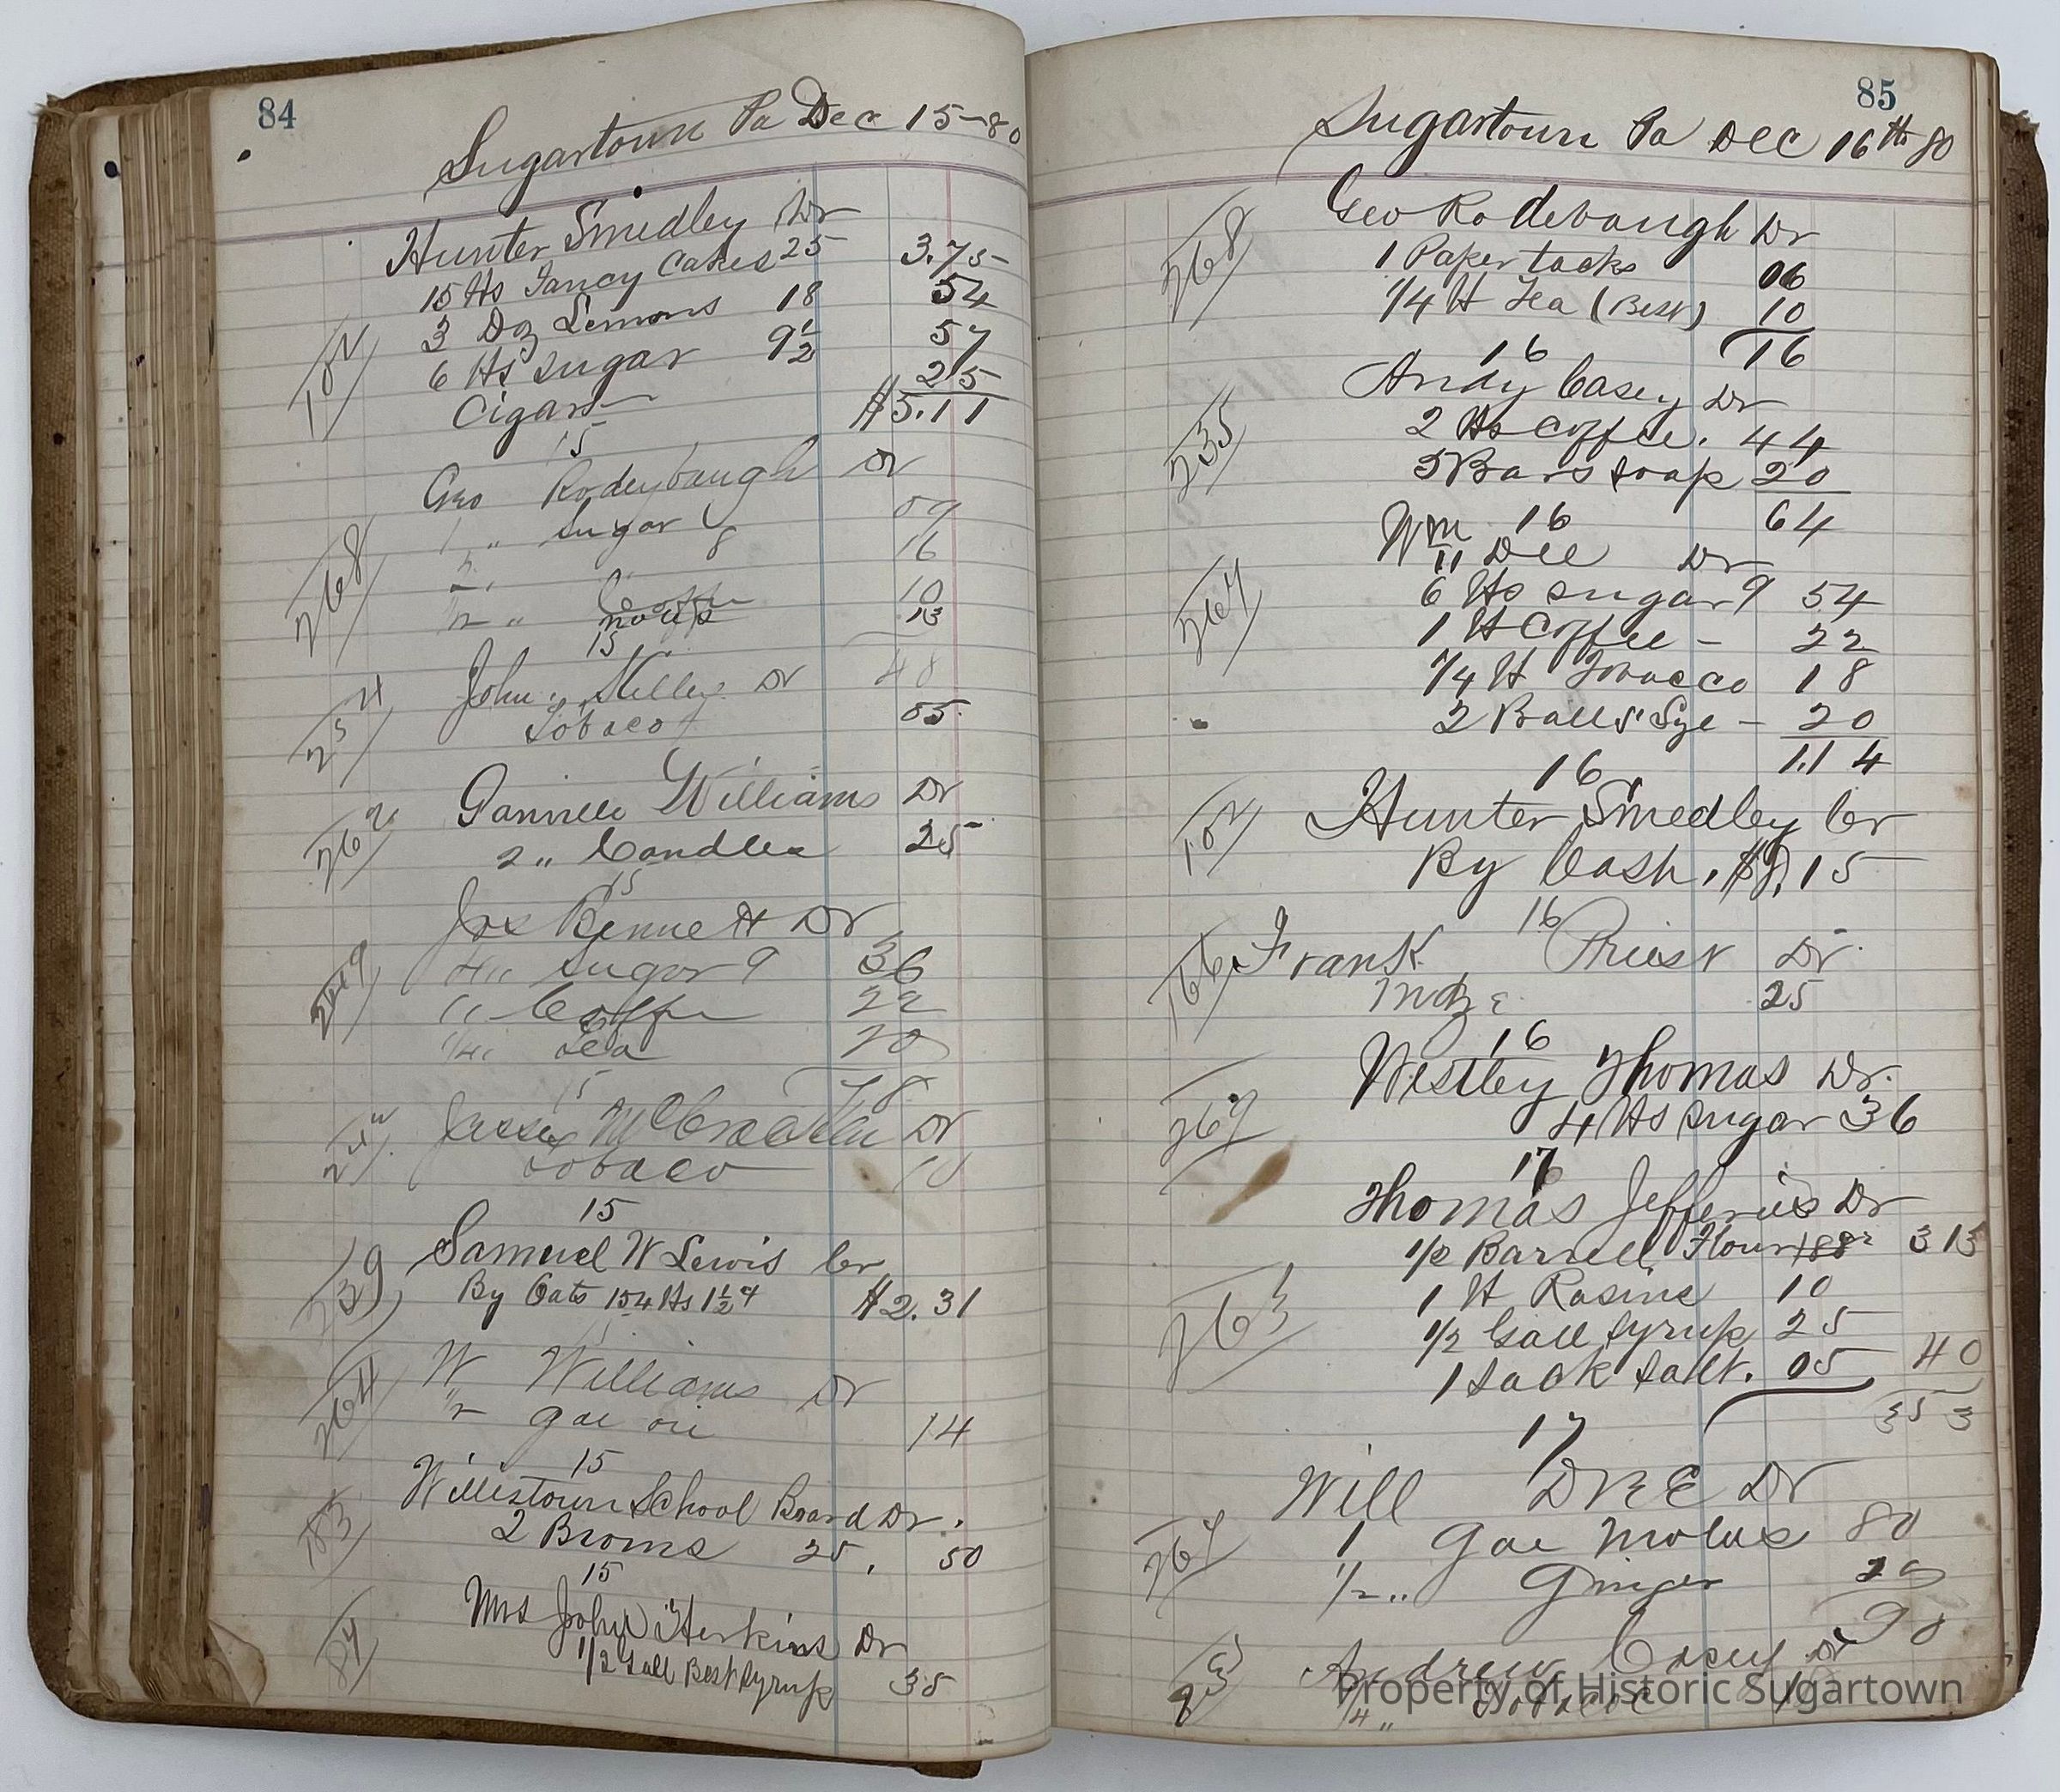 84
Sugartown Pa Dec 15-80
Hunter Smedley Dr
15 lbs Fancy Cakes 25 3.75
3 Doz Lemons 18 54
102 6 lbs Sugar 9½ 57
Cigars 25
$5.11
15
Geo Rodeybaugh Dr
1 " Sugar 09
268 2 " 8 16
½ " Coffee 10
13
15
254 John Kelley Dr 48
Tobaco 05
262 Williams Dr
2 " Candles 25
15
Jos Bennett Dr
249 4 " Sugar 9 36
1 " Coffe 22
¼ " Tea 20
78
15
Dr
Tobaco 10
15
239 Samuel W Lewis Cr
By Oats 154 lbs 1½ $2.31
15
264 W Williams Dr
½ " gal oil 14
15
183 Willistown School Board Dr.
2 Broms 25, 50
15
84 Mrs John Herkins Dr
1/2 Gall Best Syrup 35
85
Sugartown Pa Dec 16th 80
268 Geo Rodebaugh Dr
1 Paper tacks 06
1/4 lb Tea (Best) 10
16
16
235 Andy Casey Dr
2 lbs Coffee. 44
5 Bars soap 20
64
16
267 Wm Dee Dr
6 lbs sugar 9 54
1 lb Coffee - 22
1/4 lb Tobacco 18
2 Balls Lye - 20
1.14
16
102 Hunter Smedley Cr
By Cash. 15
16
166 Frank Priest Dr.
Mdze 25
16
269 Westley Thomas Dr.
4 lbs sugar 36
17
Thomas Jefferies Dr
1/2 Barrell Flour 313
263 1 lb Rasins 10
1/2 Gall syrup 25
1 sack salt. 05 40
353
17
Will DREE Dr
267 1 gal Molas 80
1/2 .. Ginger
90
23 Andrew Casey Dr
1/4 " Tobacoe 18
Property of Historic Sugartown